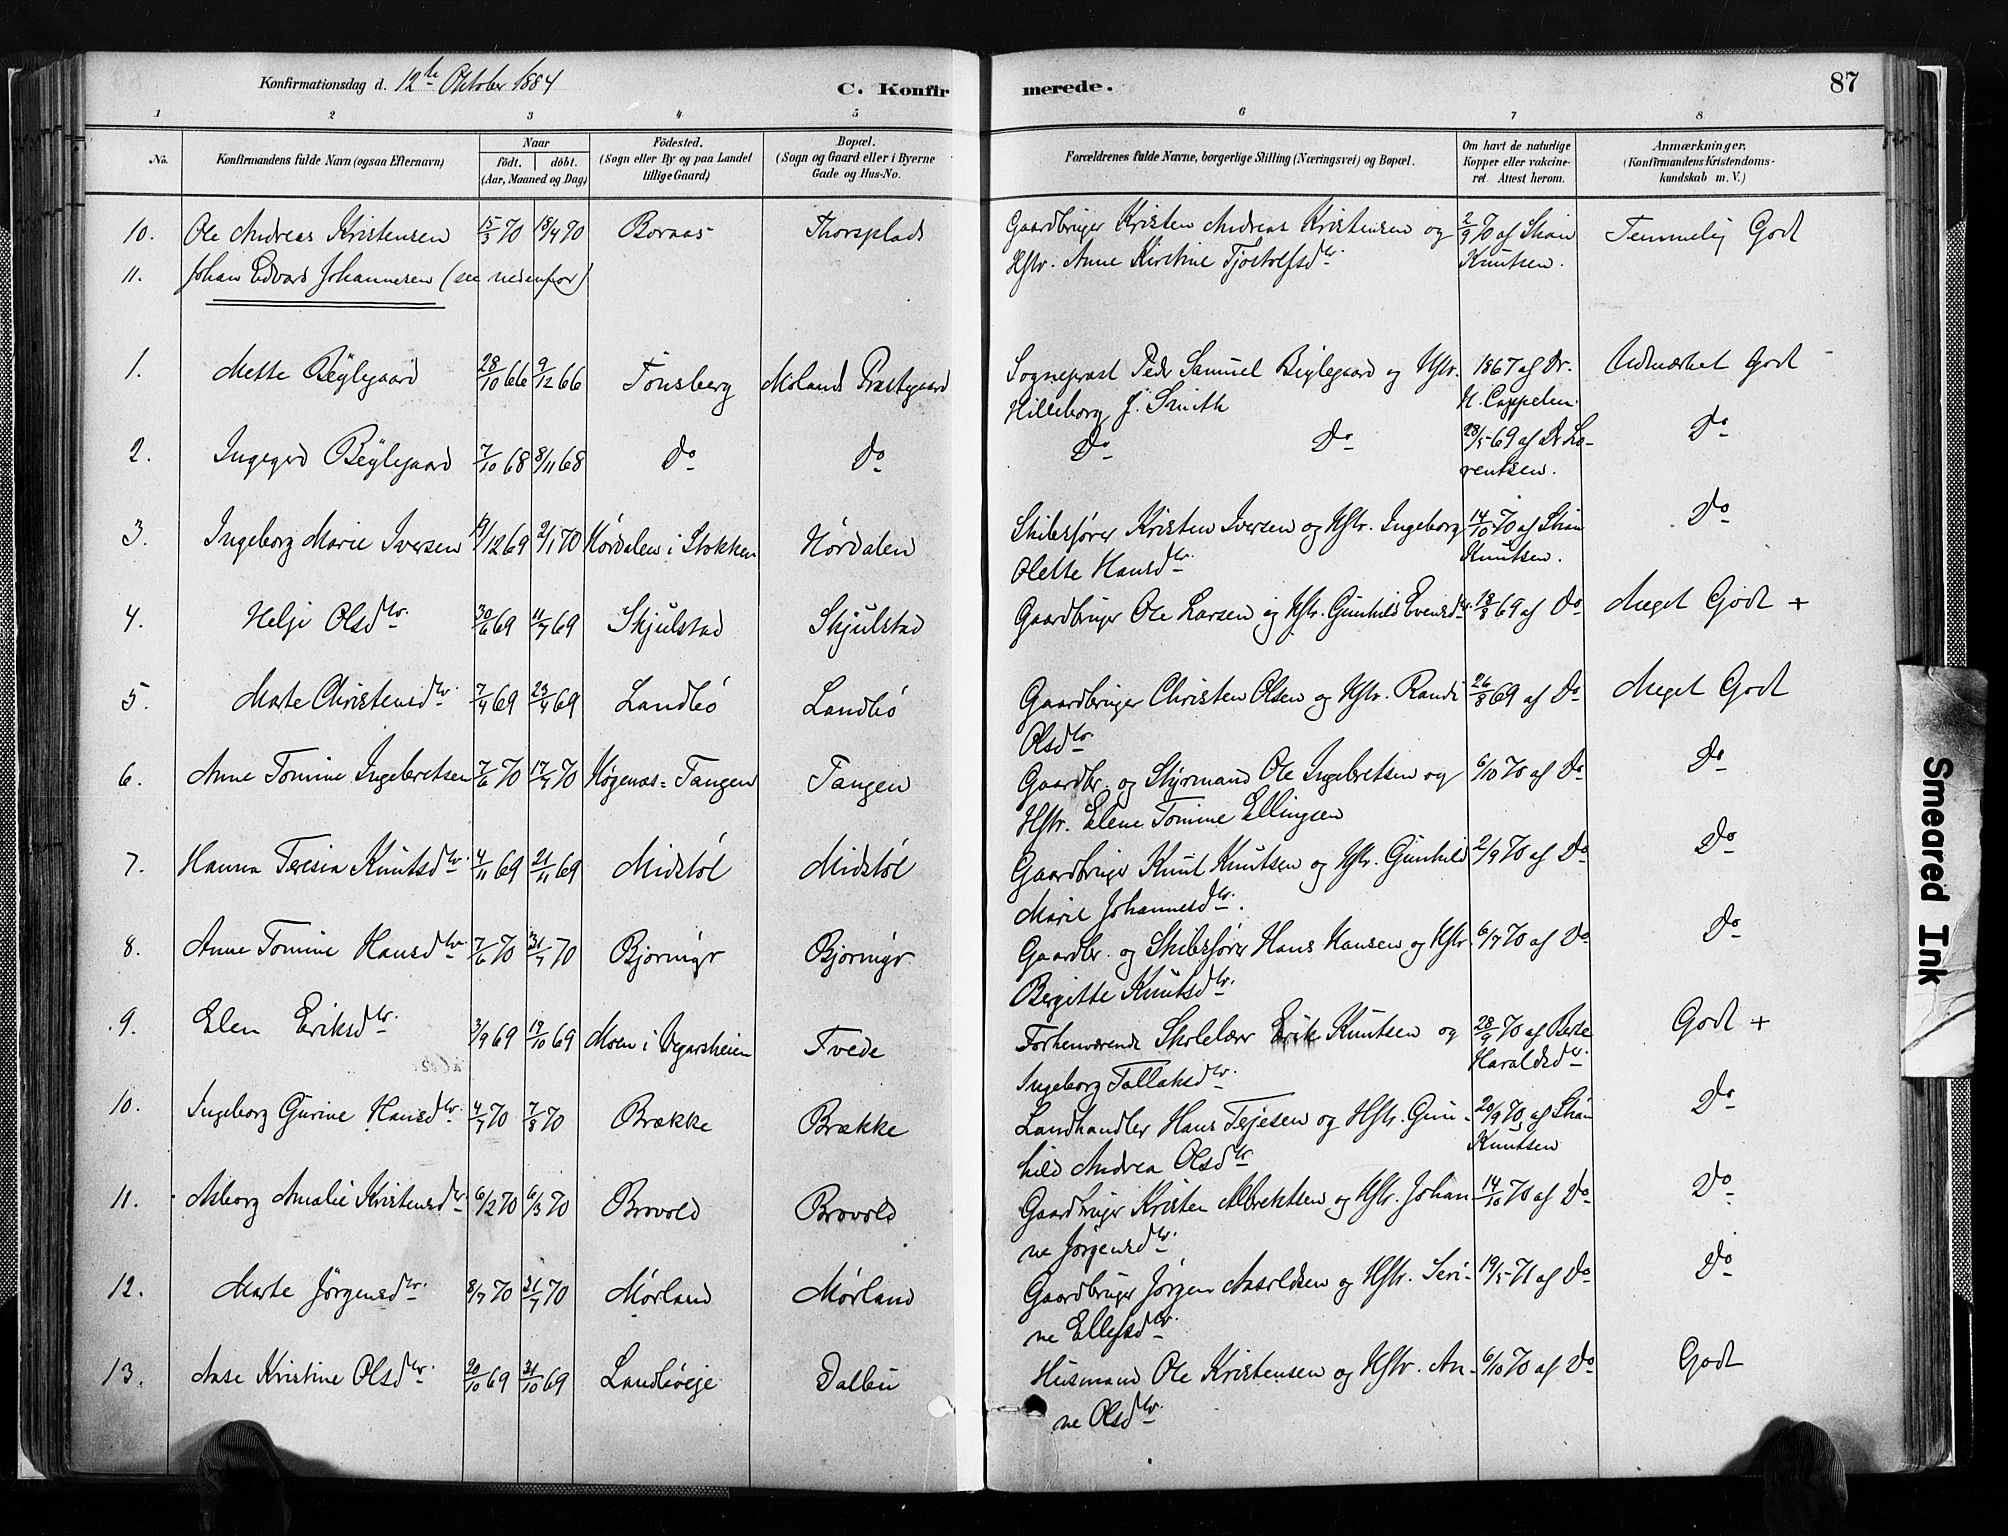 Konfirmationsdag d. 12te Oktober 1884
C. Konfirmerede.
87
1 2 3 4 5 6 7 8
No. Konfirmandens fulde Navn (ogsaa Efternavn) Naar födt. döbt. (Aar, Maaned og Dag) Födested. (Sogn eller By og paa Landet tillige Gaard) Bopæl. (Sogn og Gaard eller i Byerne Gade og Hus-No. Forældrenes fulde Navne, borgerlige Stilling (Næringsvei) og Bopæl. Om havt de naturlige Kopper eller vakcineret Attest herom. Anmærkninger. (Konfirmandens Kristendomskundskab m. V.)
10. Ole Andreas Kristensen 15/3 70 18/4 70 Boraas Thorsplads Gaardbruger Kristen Andreas Kristensen og 2/9 70 af Stian Temmelig Godt
Hstr. Anne Kirstine Tjostolfsdtr. Knutsen.
11. Johan Edvard Johannesen (see nedenfor)
1. Mette Bøylegaard 28/10 66 9/12 66 Tönsberg Molands Præstegaard Sognepræst Peder Samuel Bøylegaard og Hstr. 1867 af Dr. Udmærket Godt
Hilleborg J. Smith N. Cappelen.
2. Ingegerd Bøylegaard 7/10 68 8/11 68 Do Do Do Do 28/5 69 af Dr Lo- Do
rentsen.
3. Ingeborg Marie Iversen 19/12 69 2/1 70 Nórdalen i Stokken Nórdalen Skibsfører Kristen Iversen og Hstr. Ingeborg 14/10 70 af Stian Do
Olette Hansdtr. Knutsen.
4. Helje Olsdtr. 30/6 69 11/7 69 Skjulstad Skjulstad Gaardbruger Ole Larsen og Hstr. Gunhild Evensdtr. 18/8 69 af Do Meget Godt +
5. Marte Christensdtr. 7/4 69 23/4 69 Landbö Landbö Gaardbruger Christen Olsen og Hstr. Randi 26/8 69 af Do Meget Godt
Olsdtr.
6. Anne Tomine Ingebretsen 7/6 70 17/7 70 Høgenæs=Tangen Tangen Gaardbr. og Styrmand Ole Ingebretsen og 6/10 70 af Do Do
Hstr. Elene Tomine Ellingsen
7. Hanna Teresia Knutsdtr. 4/11 69 21/11 69 Midstöl Midstöl Gaardbruger Knut Knutsen og Hstr. Gunhild 2/9 70 af Do Do
Marie Johannesdtr.
8. Anne Tomine Hansdtr. 7/6 70 31/7 70 Bjornigr Bjornigr Gaardbr. og Skibsfører Hans Hansen og Hstr. 6/7 70 af Do Do
Birgitte Knutsdtr.
9. Elen Eriksdtr. 3/9 69 17/10 69 Moen i Vegarsheien Tvede Forhenværende Skolelærer Erik Knutsen og 28/9 70 af Berte Godt +
Ingeborg Tallaksdtr. Haraldsdtr.
10. Ingeborg Gurine Hansdtr. 4/7 70 7/8 70 Brække Brække Landhandler Hans Terjesen og Hstr. Gun- 20/9 70 af Stian Do
hild Andrea Olsdtr. Knutsen
11. Asborg Amalie Kristensdtr. 6/2 70 6/3 70 Brovold Brovold Gaardbruger Kristen Albrektsen og Hstr. Johan- 14/10 70 af Do Do
ne Jörgensdtr.
12. Marte Jörgensdtr. 8/7 70 31/7 70 Mörland Mörland Gaardbruger Jörgen Aasoldsen og Hstr. Seri- 19/5 71 af Do Do
ne Ellefsdtr.
13. Aase Kristine Olsdtr. 20/10 69 31/10 69 Landbóeje Dalbu Husmand Ole Kristensen og Hstr. An- 6/10 70 af Do Godt
ne Olsdtr.
Smeared Ink